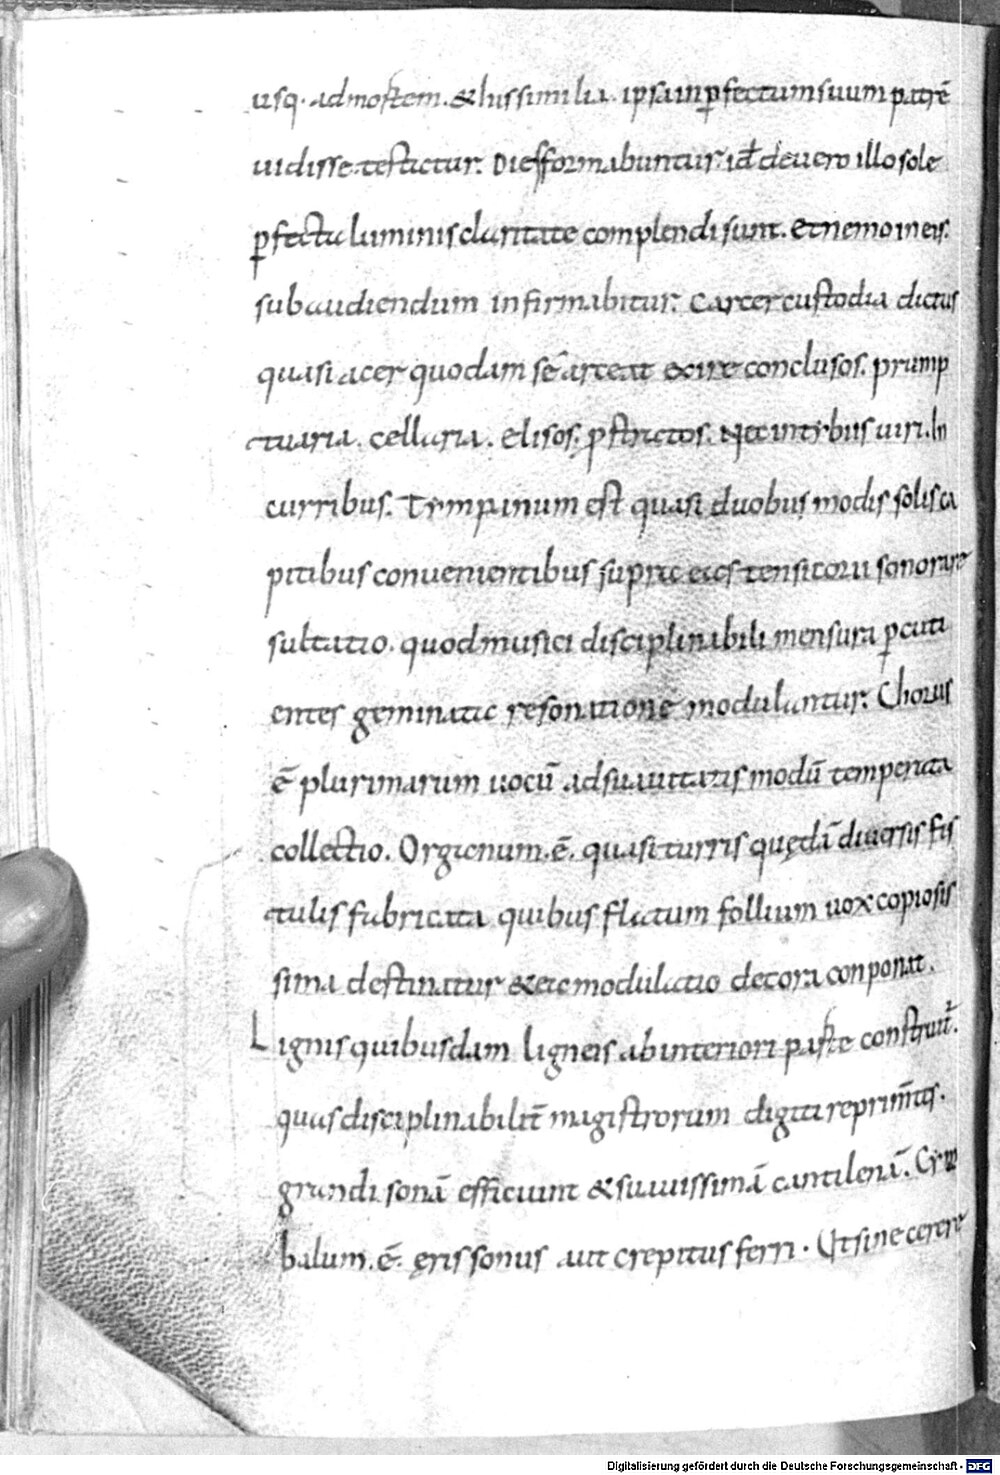 usq· ad mortem. & his similia. ipsa inꝑfectum suum patrē
uidisse testatur. Dies formabuntur. id÷ de uero illo sole
ꝑfecta luminis claritate complendi sunt. Et nemo in eis.
subaudiendum infirmabitur. Carcer custodia dictus
quasi acer quodam sē arceat exire conclusos. prump
tuaria. cellaria. Elisos. ꝑstrictos. Nec in tybus uiri. In
curribus. Tympanum est quasi duobus modis solis ca
pitibus conuenientibus supra eas tensi corii sonora re
sultatio. quod musici disciplinabili mensura ꝑcuti
entes geminata resonatione modulantur. Chorus
ē plurimarum uocū ad suauitatis modū temperata
collectio. Organum.ē. quasi turris quędā diuersis fis
tulis fabricata quibus flatum follium uox copiosis
sima destinatur & ea modulatio decora conponat.
Lignis quibusdam ligneis ab interiori parte construit̄.
quas disciplinabilit̄ magistrorum digiti reprimtis.
grandi sonā efficiunt & suauissimā cantilenā. Cym
balum.ē. ęris sonus aut crepitus ferri. Et sine cerere